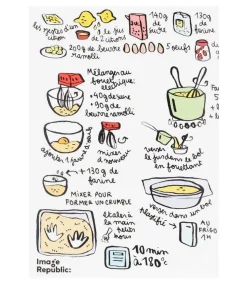 les zestes d'un citron
le jus de 2 citrons
140g de sucre
130g de farine
200g de beurre ramolli
5 oeufs
Mélanger au fouet
électrique
+ 40g de sucre
+ 90g de
beurre ramolli
ajouter 1 jaune d'oeuf
mixer
d'nouveau
verser
le jus dans le bol
en fouettant
+ 130g de
farine
MIXER POUR
FORMER UN CRUMBLE
verser dans un bol
étaler à
la main
petits
trous
AU
FRIGO
1H
10 min
à 180°
Image
Republic: